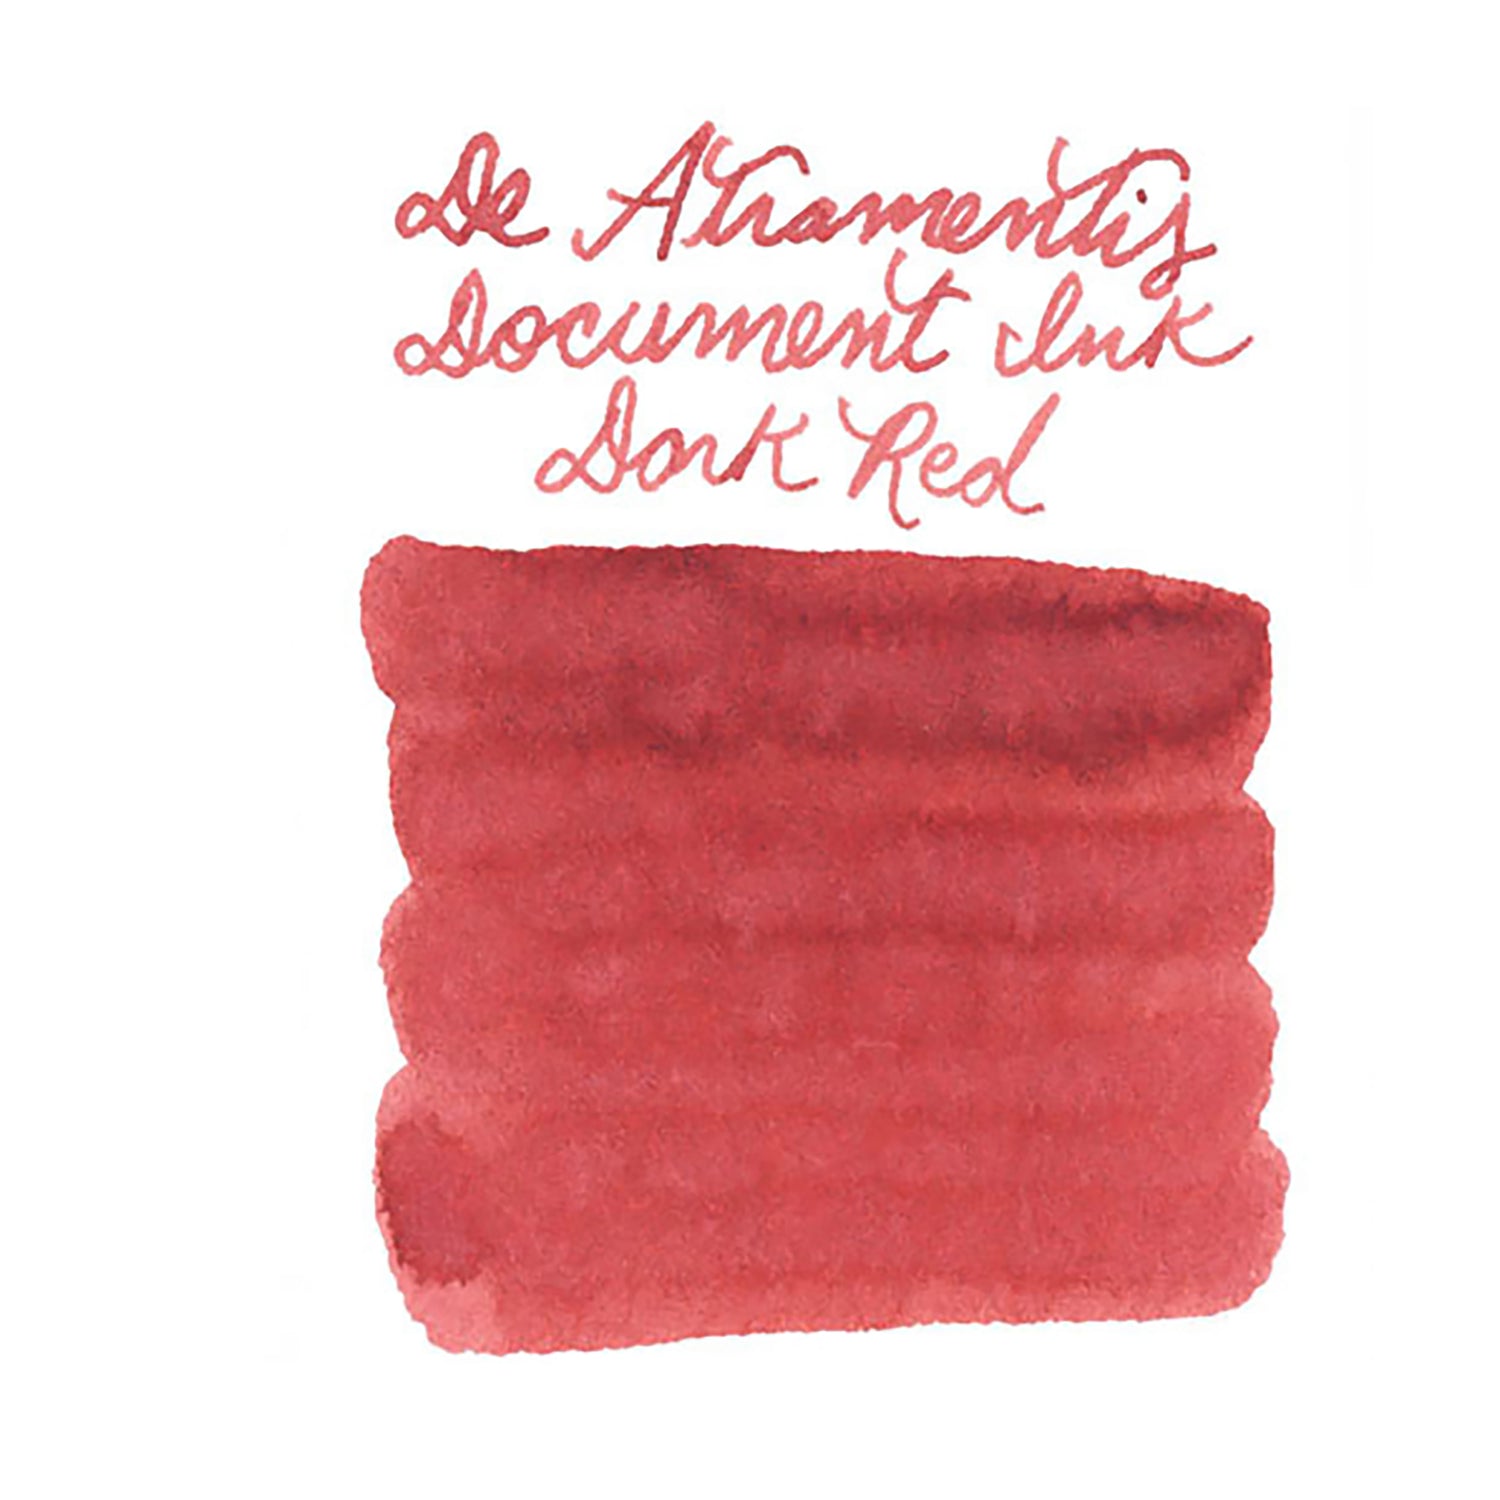 De Atramentis
Document Ink
Dark Red